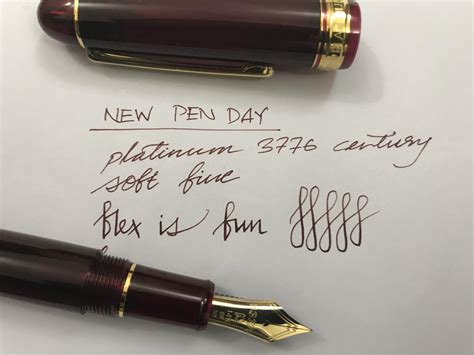 NEW PEN DAY
platinum 3776 century
soft fine
flex is fun